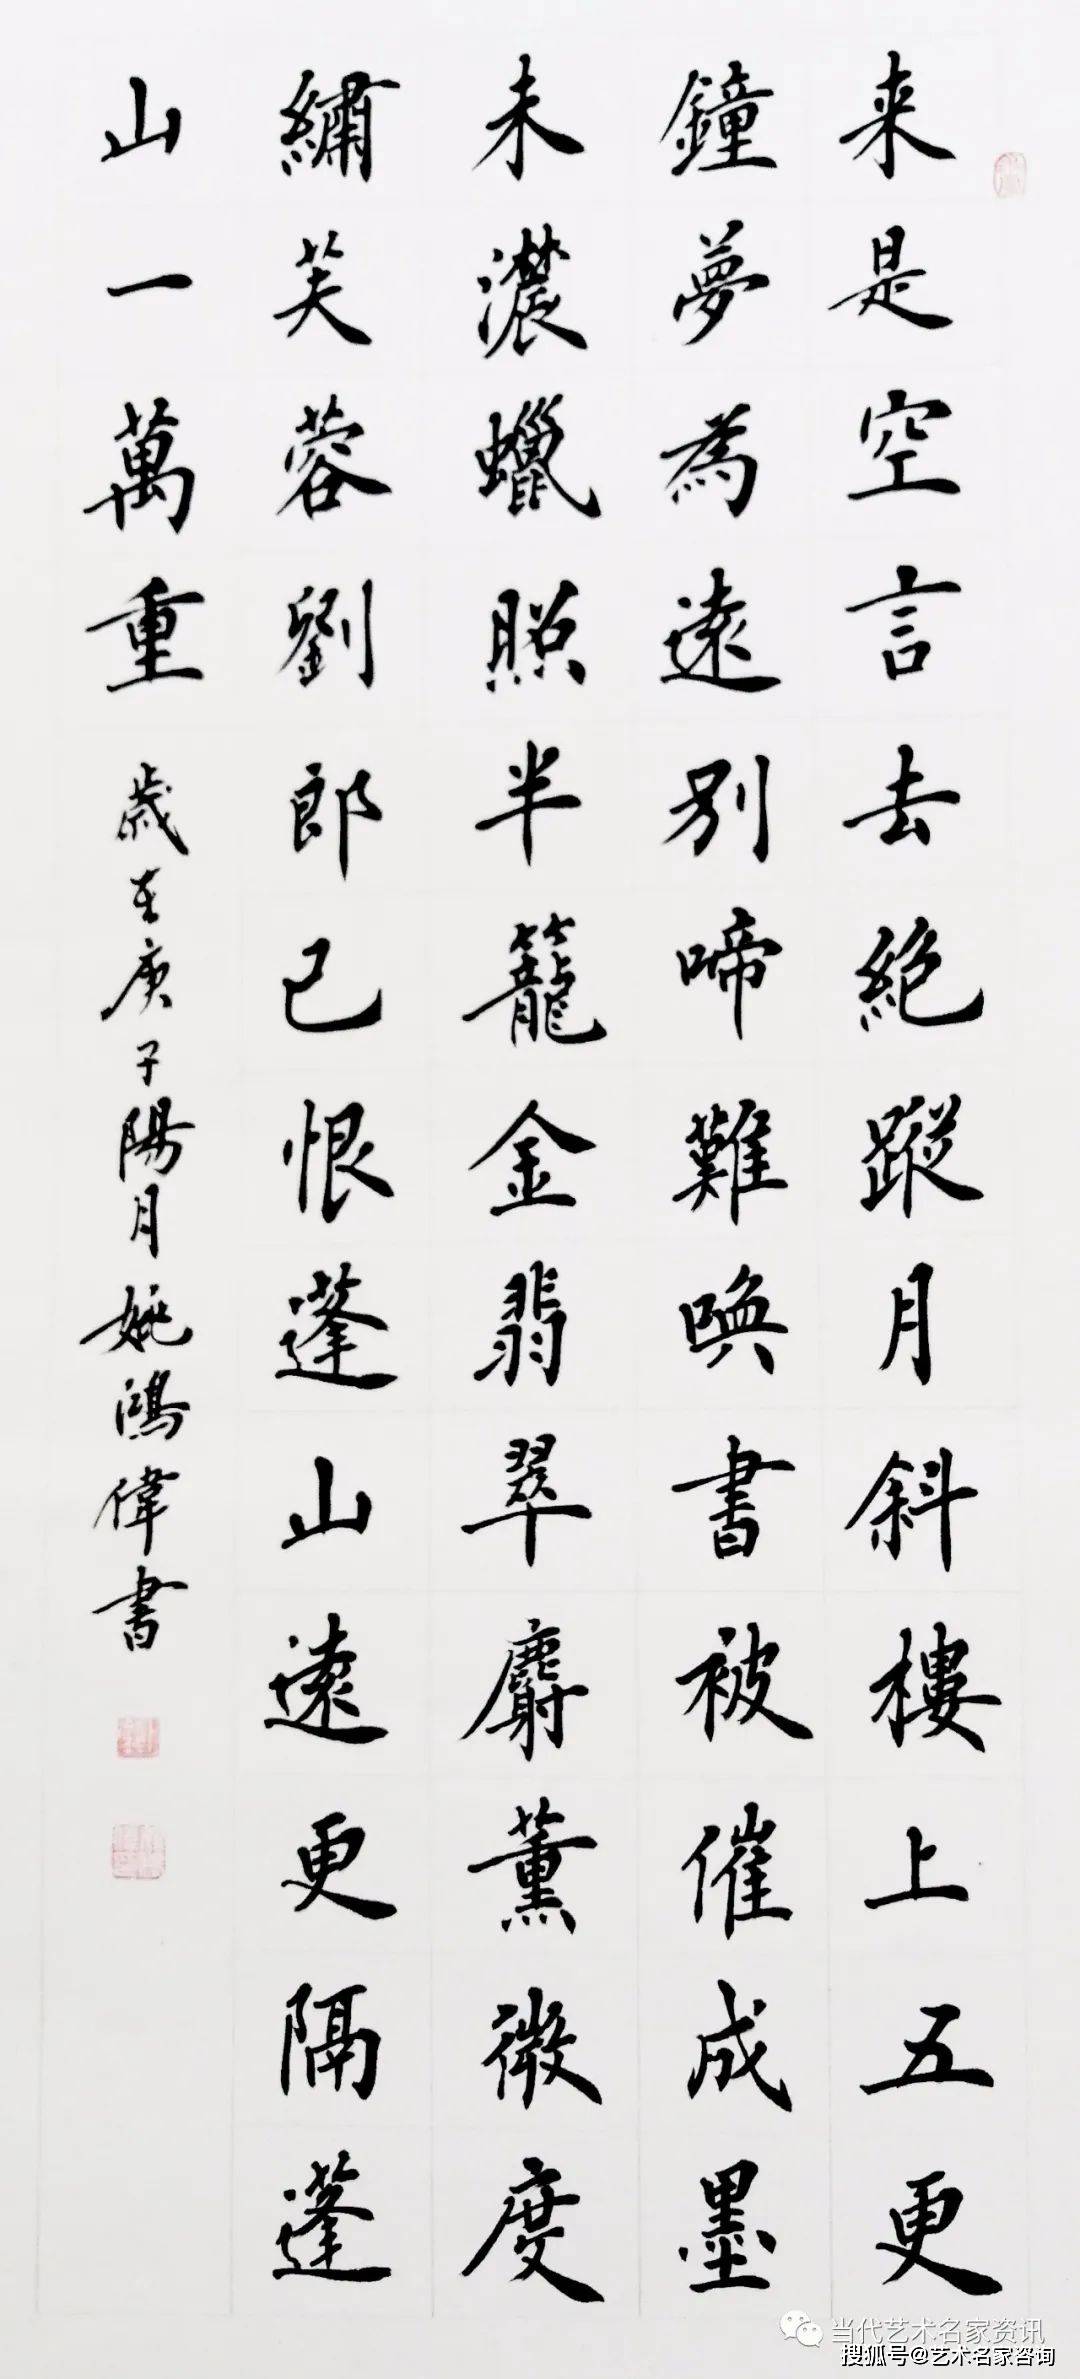 来是空言去絶蹤月斜樓上五更
鐘夢為遠別啼難喚書被催成墨
未濃蠟照半籠金翡翠麝薰微度
繡芙蓉劉郎已恨蓬山遠更隔蓬
山一萬重
歲在庚子陽月姚鴻偉書
当代艺术名家资讯
搜狐号@艺术名家咨询